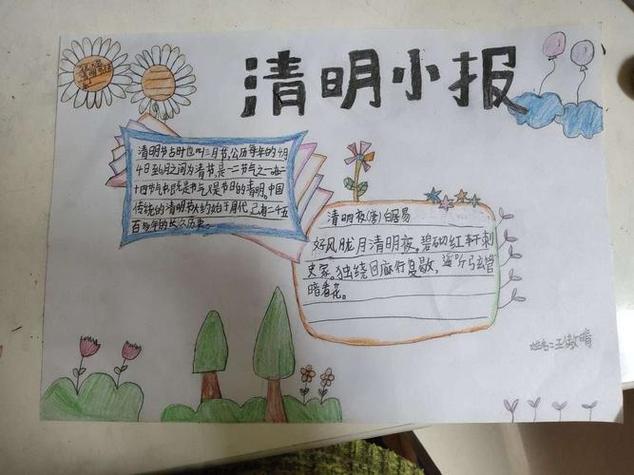 清明小报
清明节古时也叫三月节,公历每年的4月
4日至6月之间为清节,是二十节气之一在二
十四节气中既是节气又是节日的清明。中国
传统的清明节大约始于周代,已有二千五
百多年的长久历史。
清明夜(唐)白居易
好风胧月清明夜,碧砌红轩刺
史家。独绕回廊行复歇,遥听弦管
暗看花。
姓名:王